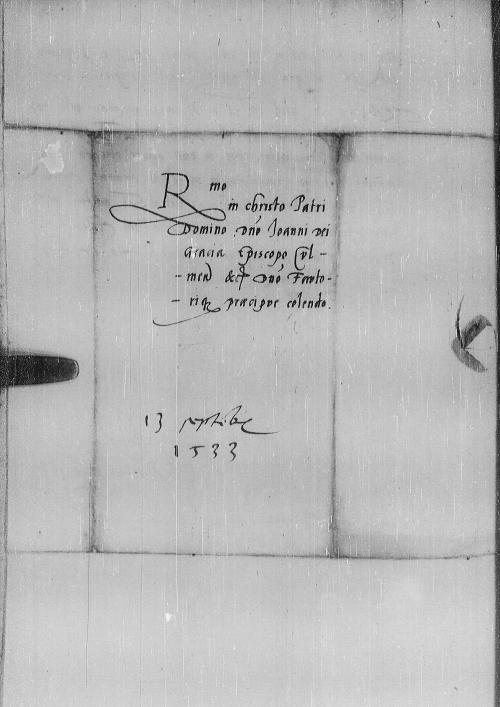 Rmo
in christo Patri
Domino dno Ioanni Dei
Gracia Episcopo Cvl-
-men &c dno Favto-
-riq præcipve colendo.
13 septēbr
1533